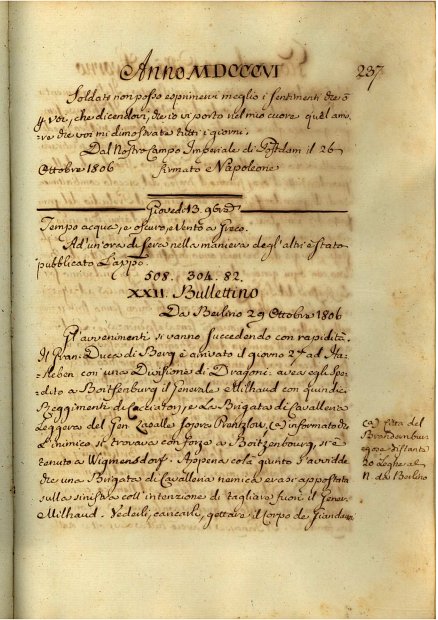 Anno MDCCCVI
237
Soldati non posso esprimervi meglio i sentimenti che ò
p. voi, che dicendovi, che io vi porto nel mio cuore quell'amo-
re che voi mi dimostrate tutti i giorni.
Dal Nostro Campo Imperiale di Postdam il 26
Ottobre 1806 firmato Napoleone
Giovedì 13. 9bre
Tempo acqua, e oscuro, e vento a Greco.
Ad un'ora di sera nella maniera degl'altri è stato
pubblicato l'appo.
508. 304. 82.
XXII. Bullettino
Da Berlino 29 Ottobre 1806
Gl'avvenimenti si vanno succedendo con rapidità.
Il Gran-Duca di Berg è arrivato il giorno 27 ad
sleben con una Divisione di Dragoni: avea egli spe-
dito a Boitzenburg il Generale Milhaud con quindici
Reggimenti di Cacciatori, e la Brigata di Cavalleria
Leggera del Gen. Lasalle sopra Prentzlow, (a) informato che
l'inimico si trovava con forze a Boitzenbourg, si è
tenuto a Wigmensdorf. Appena colà giunto s'avvidde
che una Brigata di Cavalleria nemica erasi appostata
sulla sinistra coll'intenzione di tagliare fuori il Gener.
Milhaud. Vederli, caricarli, gettare il Corpo de
(a) Città del
Brandenbur-
ghese distante
20 Leghe al
N. da Berlino